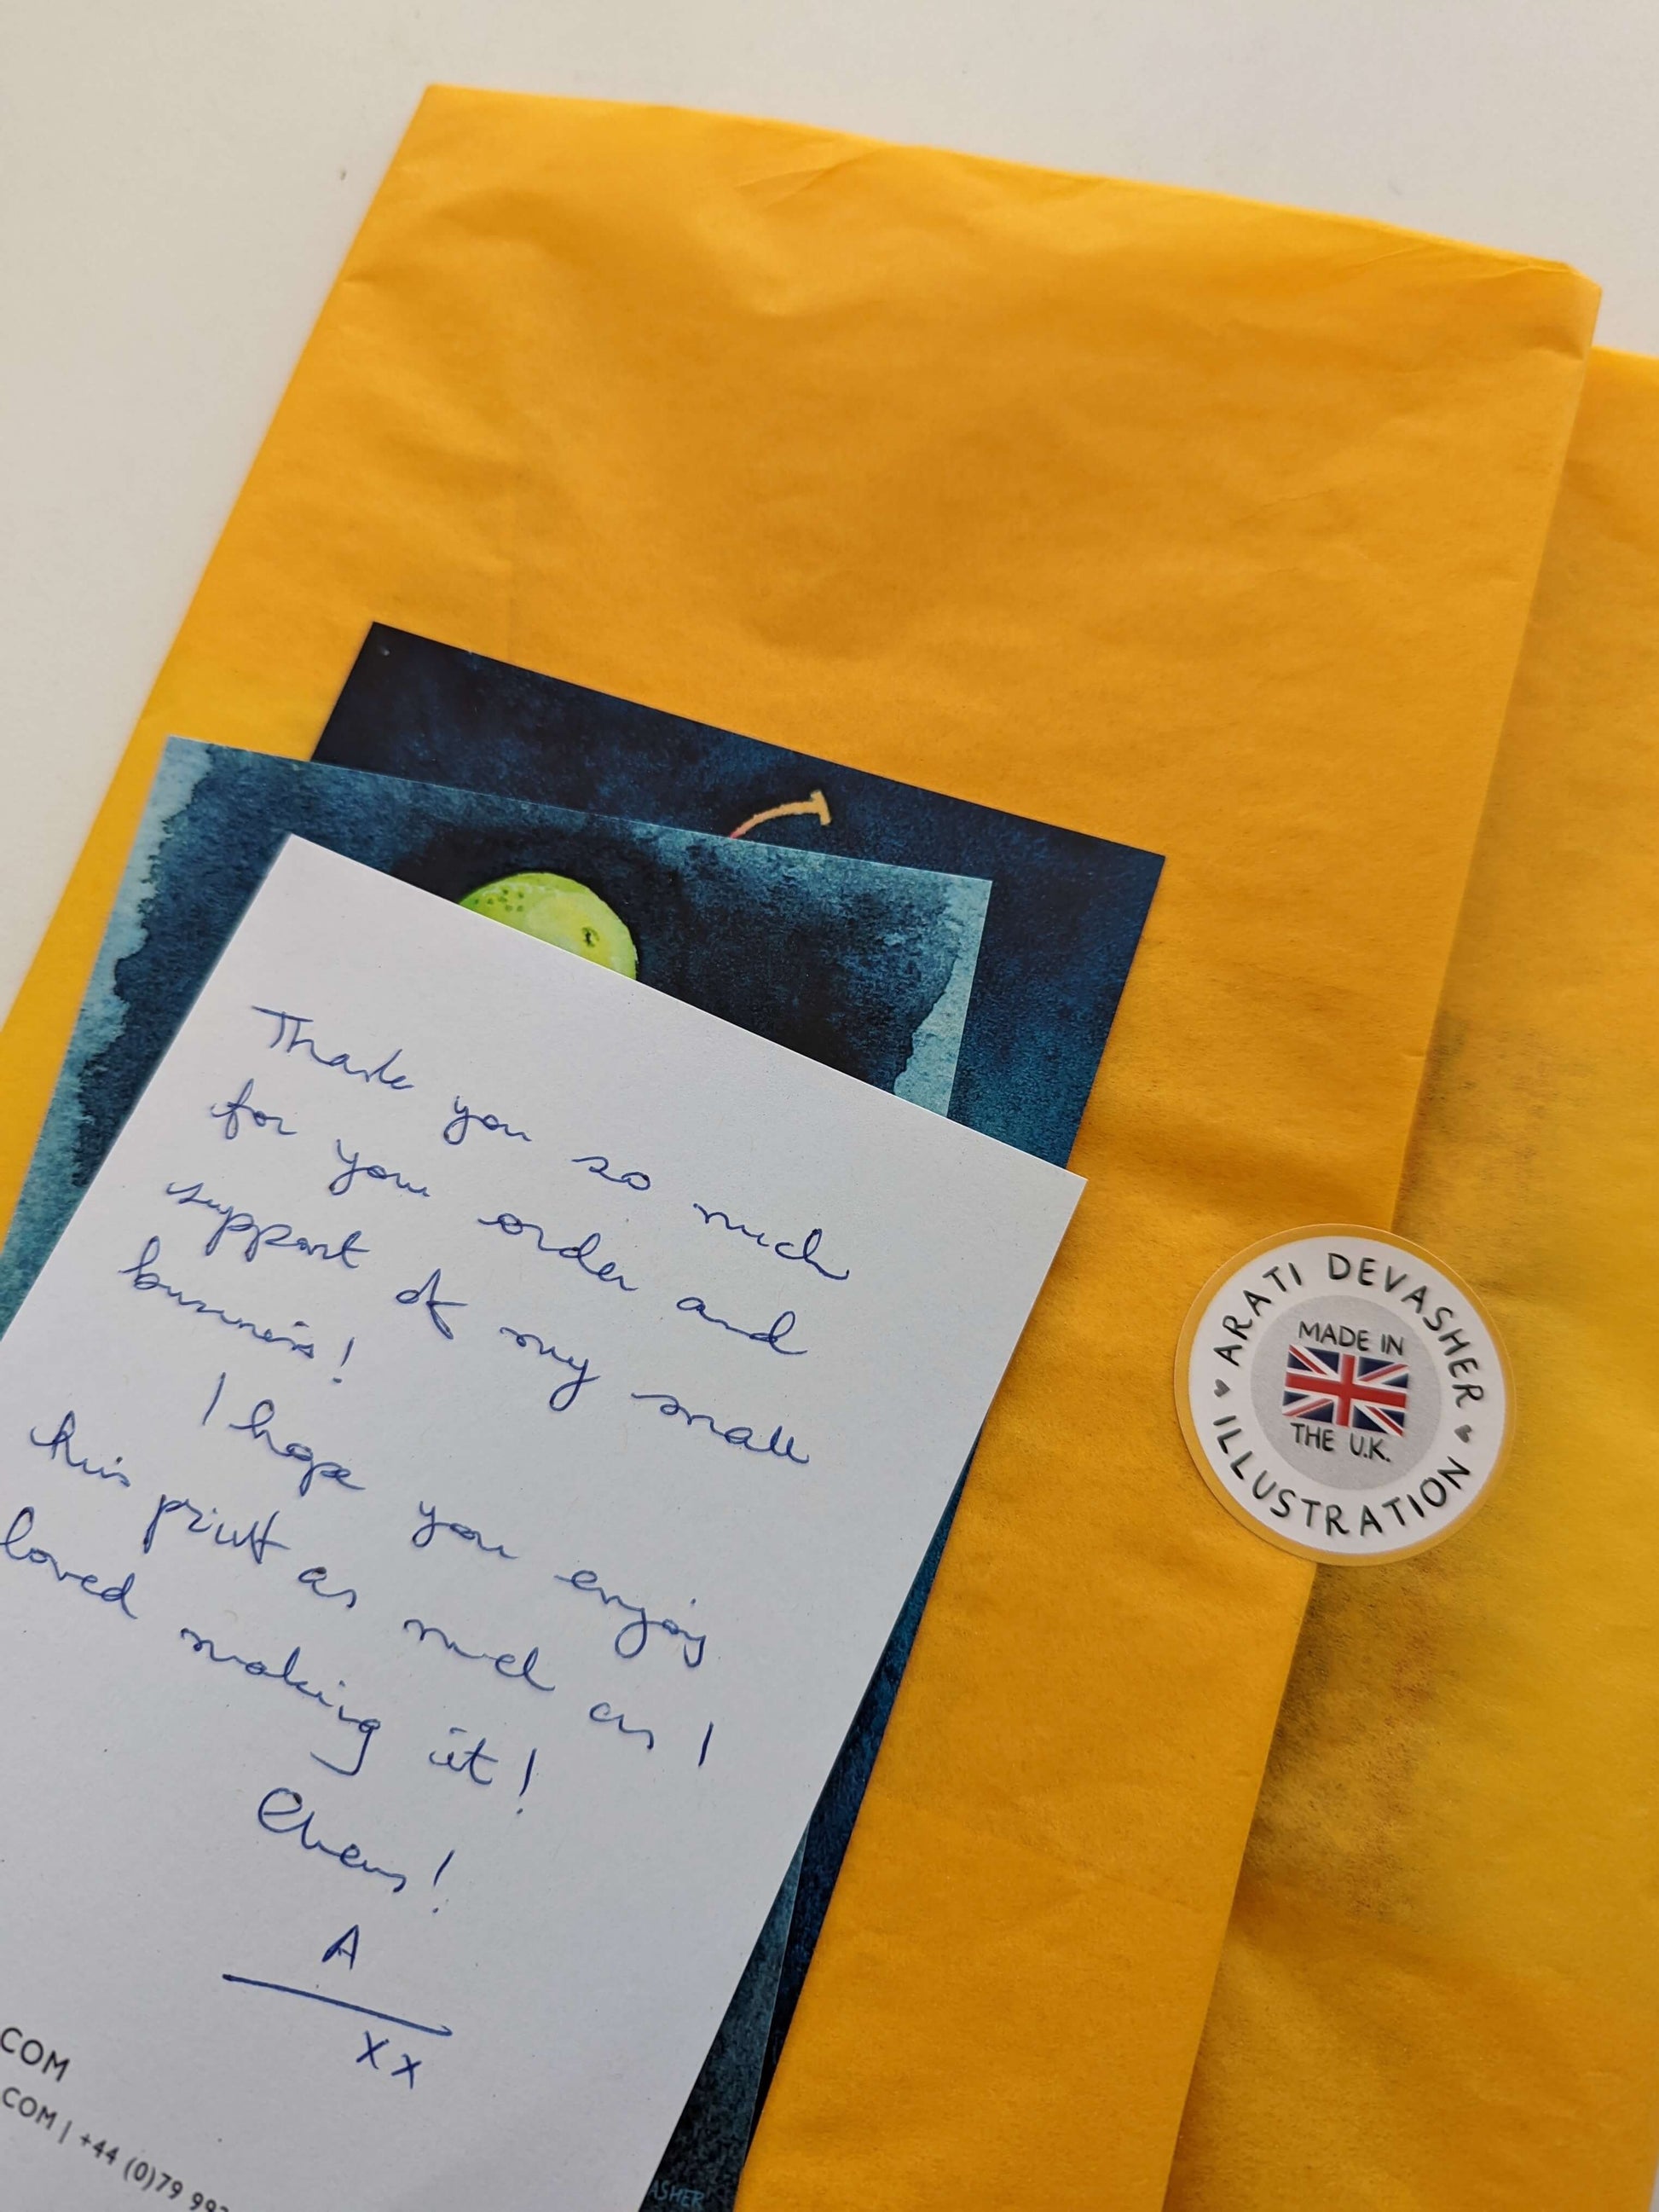 Thank you so much
for your order and
support of my small
business!
I hope you enjoy
this print as much as I
loved making it!
Cheers!
A
xx
COM
COM | +44 (0)79 99
ASHER
ARATI DEVASHER
MADE IN
THE U.K.
ILLUSTRATION